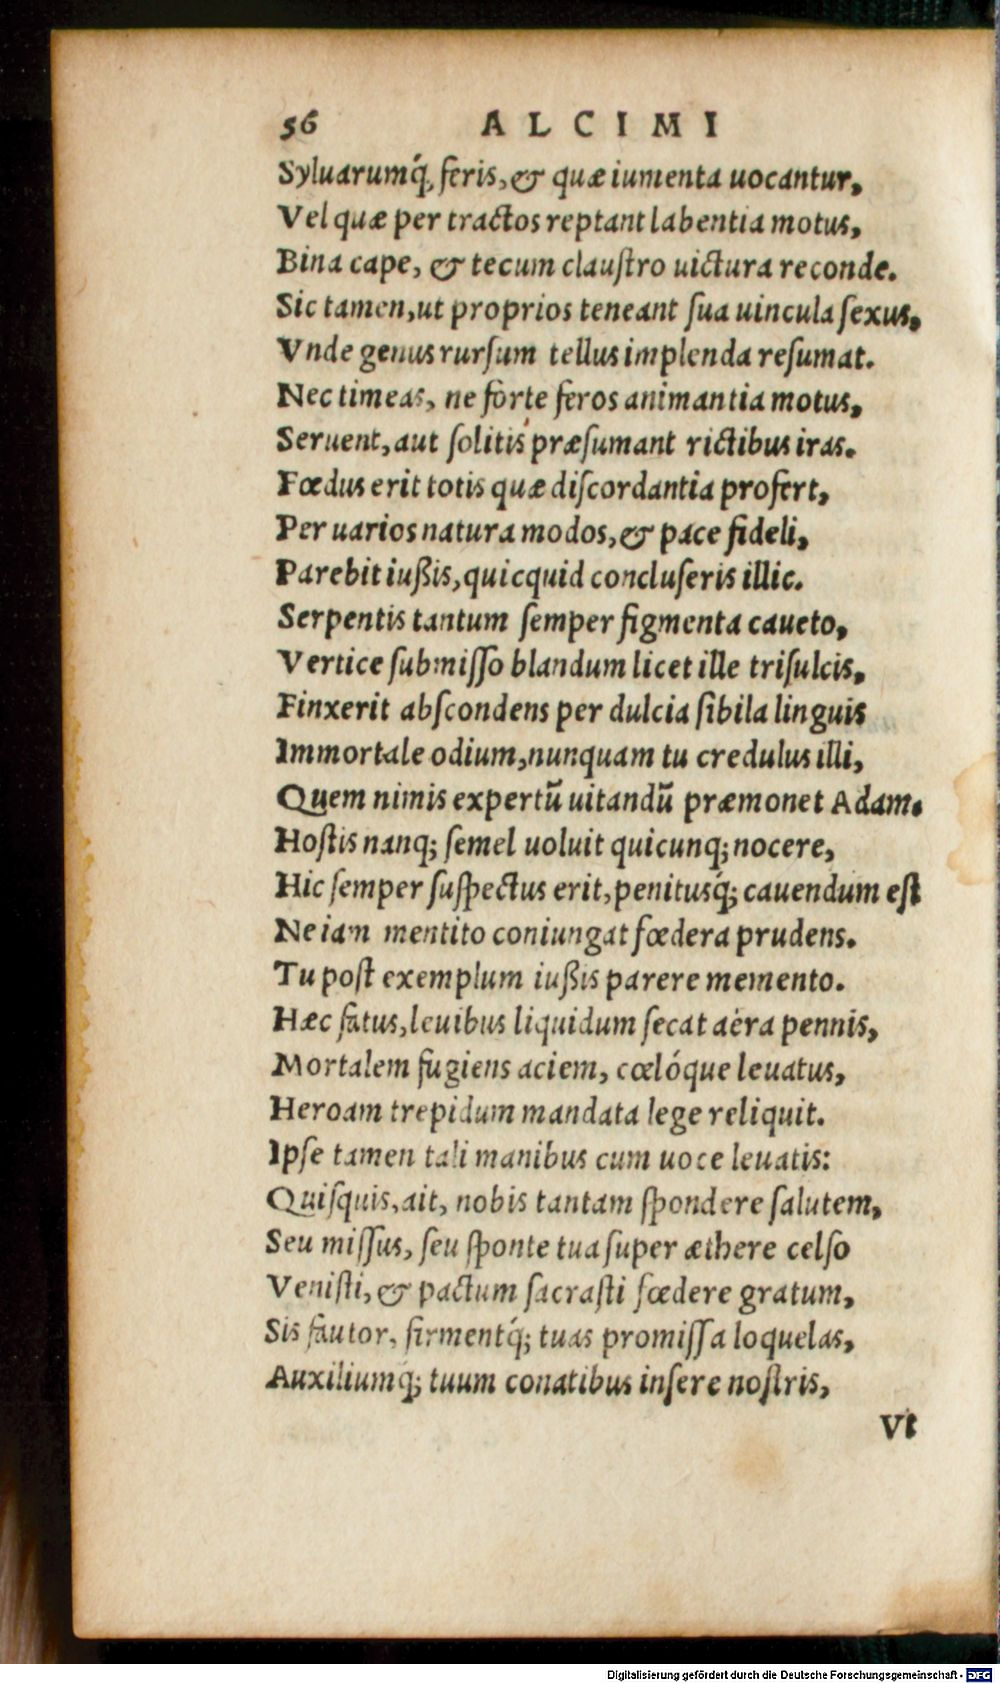 56 ALCIMI
Syluarumq́, feris, & quæ iumenta uocantur,
Vel quæ per tractos reptant labentia motus,
Bina cape, & tecum claustro uictura reconde.
Sic tamen, ut proprios teneant sua uincula sexus,
Vnde genus rursum tellus implenda resumat.
Nec timeas, ne forte feros animantia motus,
Seruent, aut solitis præsumant rictibus iras.
Fœdus erit totis quæ discordantia profert,
Per uarios natura modos, & pace fideli,
Parebit iußis, quicquid concluseris illic.
Serpentis tantum semper figmenta caueto,
Vertice submisso blandum licet ille trisulcis,
Finxerit abscondens per dulcia sibila linguis
Immortale odium, nunquam tu credulus illi,
Quem nimis expertũ uitandũ præmonet Adam.
Hostis nanq; semel uoluit quicunq; nocere,
Hic semper suspectus erit, penitusq́; cauendum est
Ne iam mentito coniungat fœdera prudens.
Tu post exemplum iußis parere memento.
Hæc fatus, leuibus liquidum secat aëra pennis,
Mortalem fugiens aciem, cœlóque leuatus,
Heroam trepidum mandata lege reliquit.
Ipse tamen tali manibus cum uoce leuatis:
Quisquis, ait, nobis tantam spondere salutem,
Seu missus, seu sponte tua super æthere celso
Venisti, & pactum sacrasti fœdere gratum,
Sis fautor, firmentq́; tuas promissa loquelas,
Auxiliumq́; tuum conatibus insere nostris,
Vt
Digitalisierung gefördert durch die Deutsche Forschungsgemeinschaft - DFG